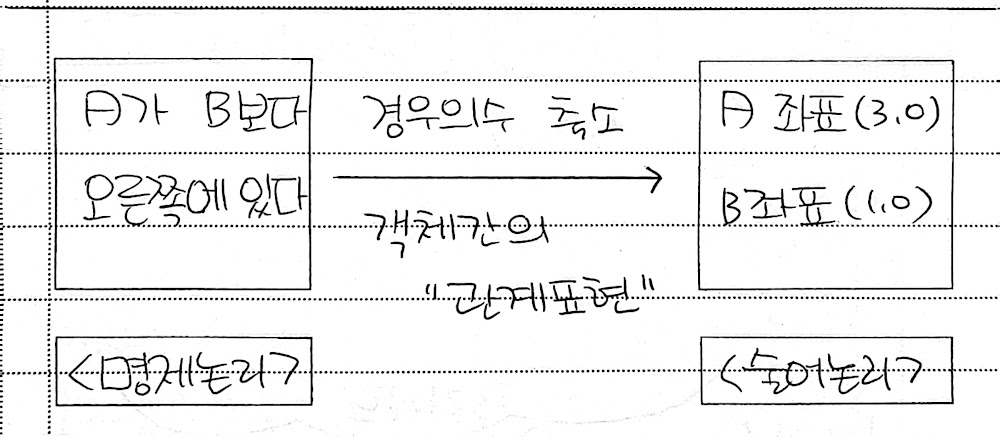 A가 B보다
오른쪽에 있다
경우의수 축소
객체간의
"관계표현"
A 좌표(3.0)
B좌표(1.0)
<명제논리>
<술어논리>